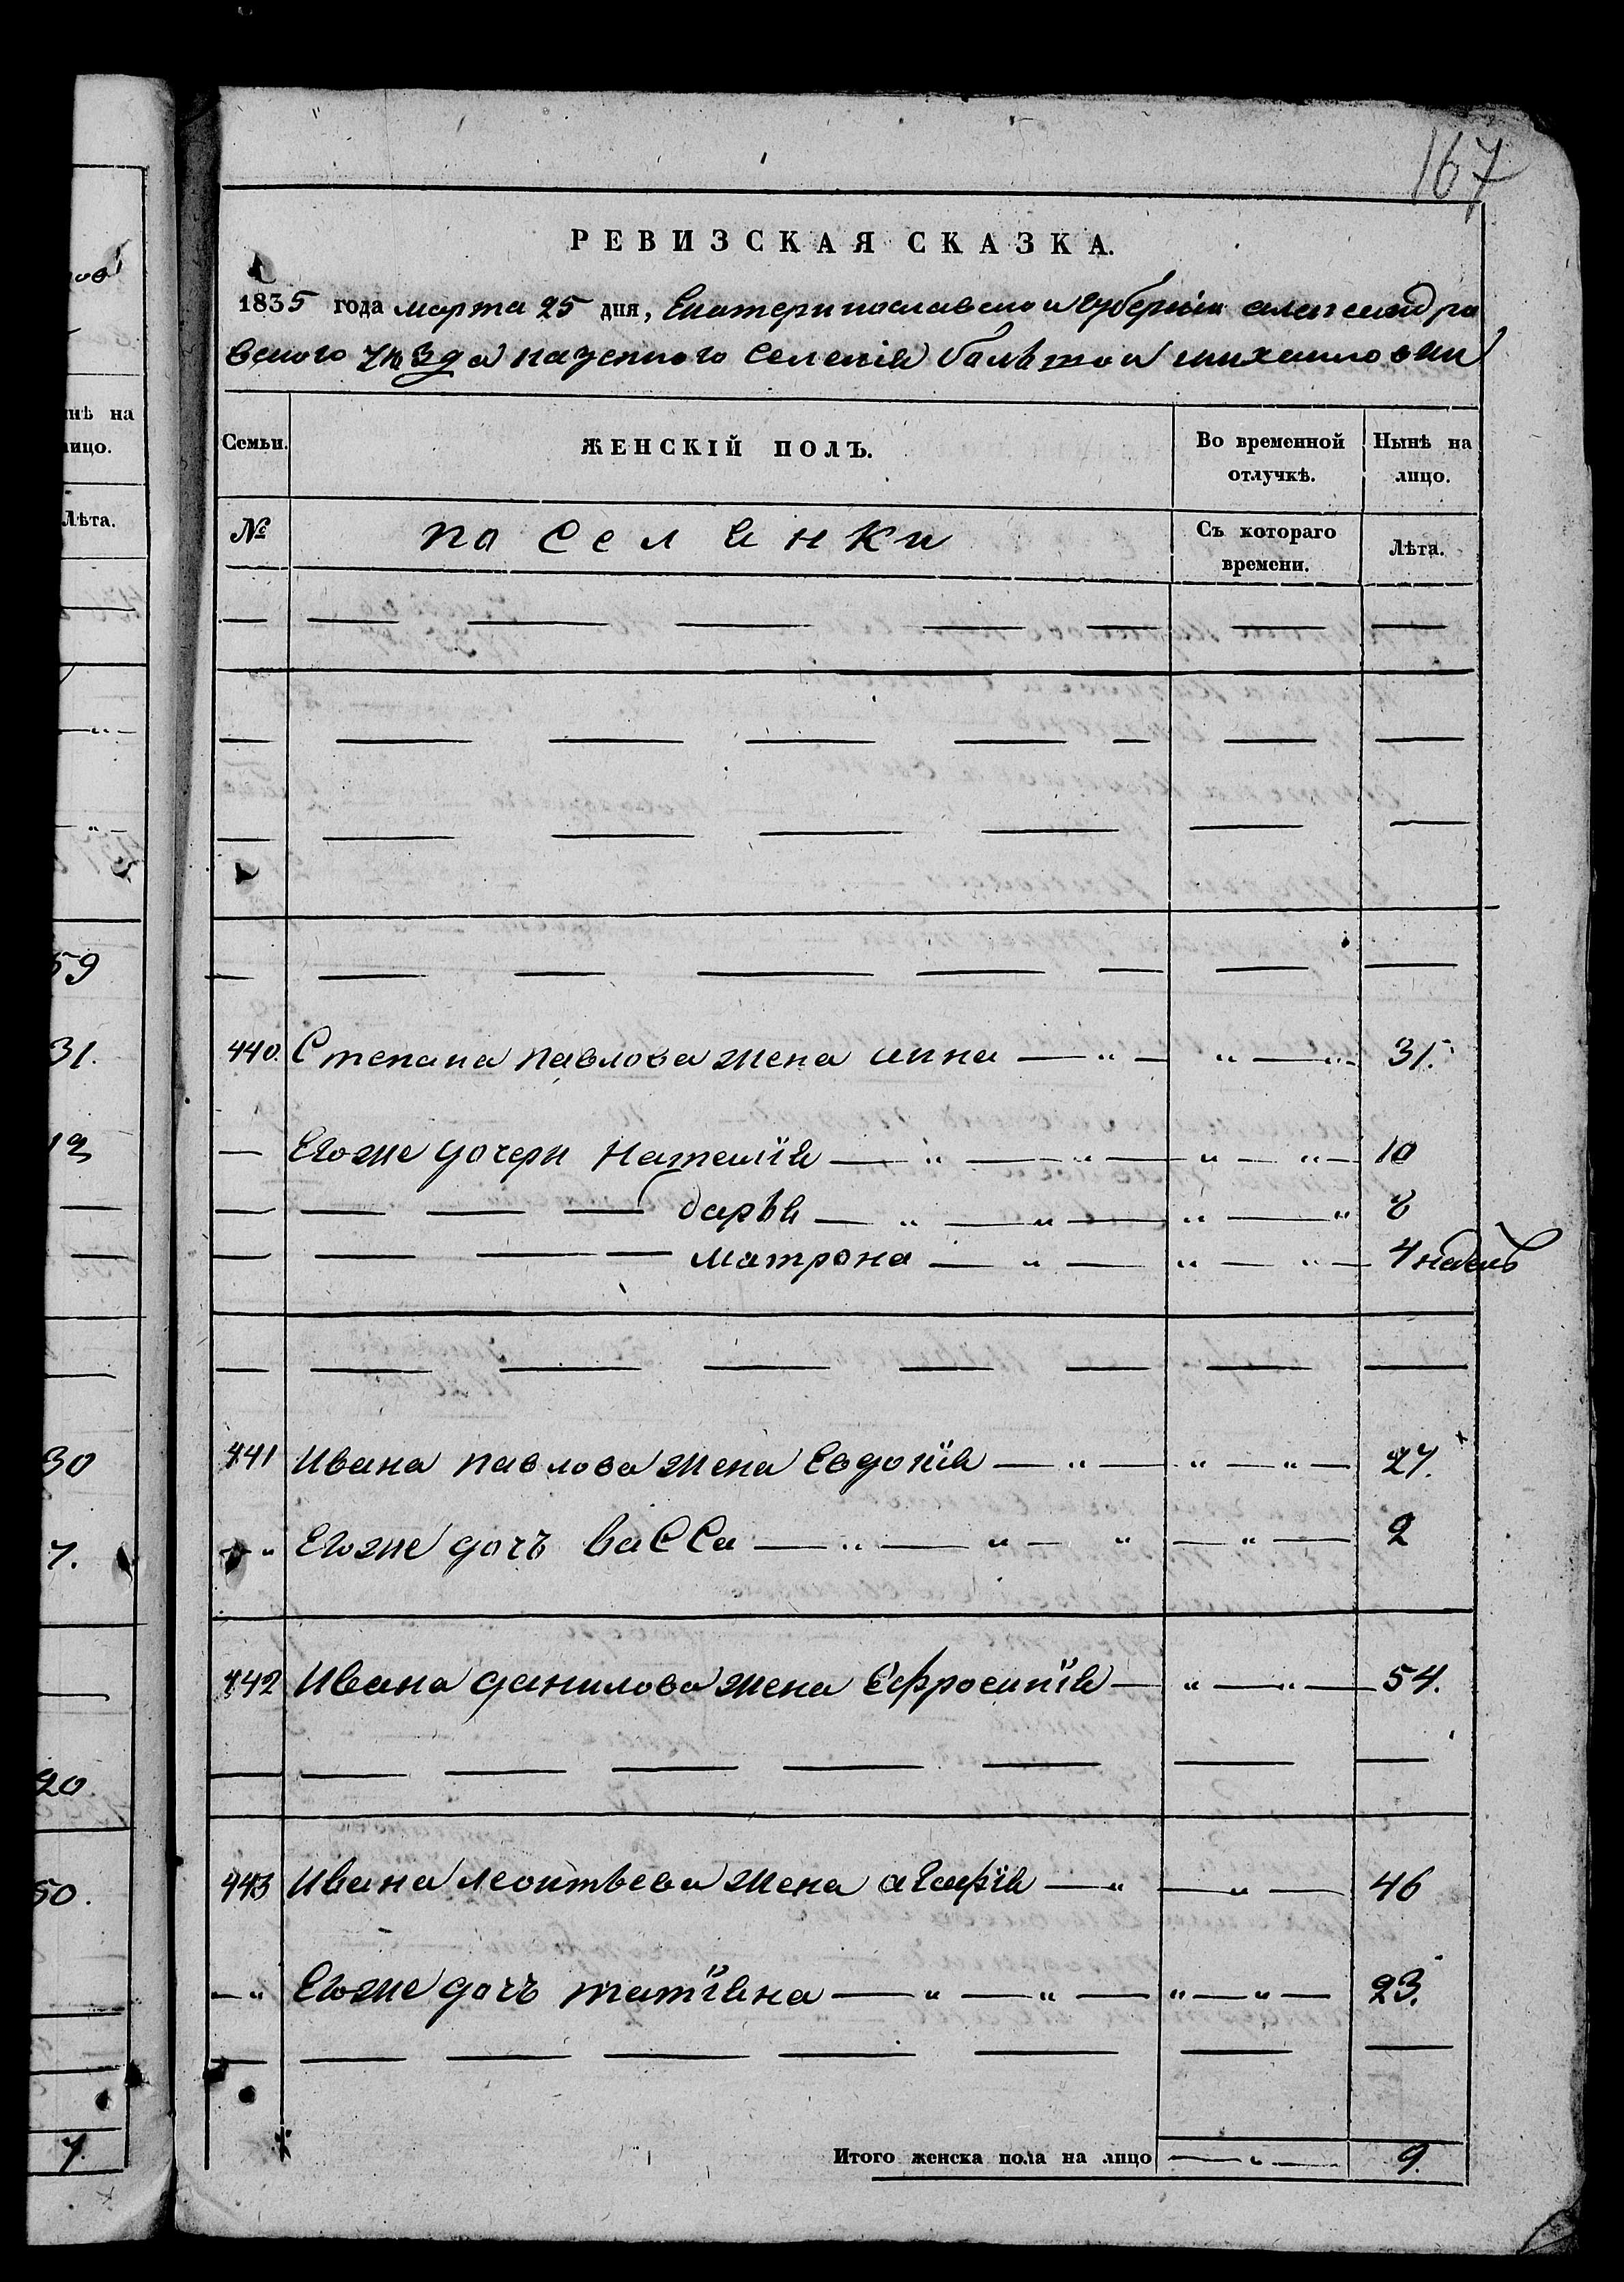 167
РЕВИЗСКАЯ СКАЗКА.
1835 года марта 25 дня, Екатеринославской губерніи александро
вского уѣзда казенного селенія болшой михайловки
Семьи. ЖЕНСКІЙ ПОЛЪ. Во временной отлучкѣ. Нынѣ на лицо.
№ поселянки Съ котораго времени. Лѣта.
440. Степана павлова жена анна — „ — „ — „ — 31.
— Егоже дочери Наталія — „ — „ — „ — „ — 10
— — — — дарья — „ — „ — „ — „ 8
— — — — матрона — „ — „ — „ — 4 недель
441 Ивана павлова жена Евдокія — „ — „ — „ — 27.
— „ Егоже дочь васса — „ — „ — „ — „ — 2
442 Ивана данилова жена Ефросинія — „ — „ — 54.
443 Ивана леонтьева жена агафія — „ — „ — 46
— „ Егоже дочь татіяна — „ — „ — „ — „ — 23.
Итого женска пола на лицо — „ — 9.
нѣ на
лицо.
Лѣта.
59
31.
13
30
7.
20.
50.
7.